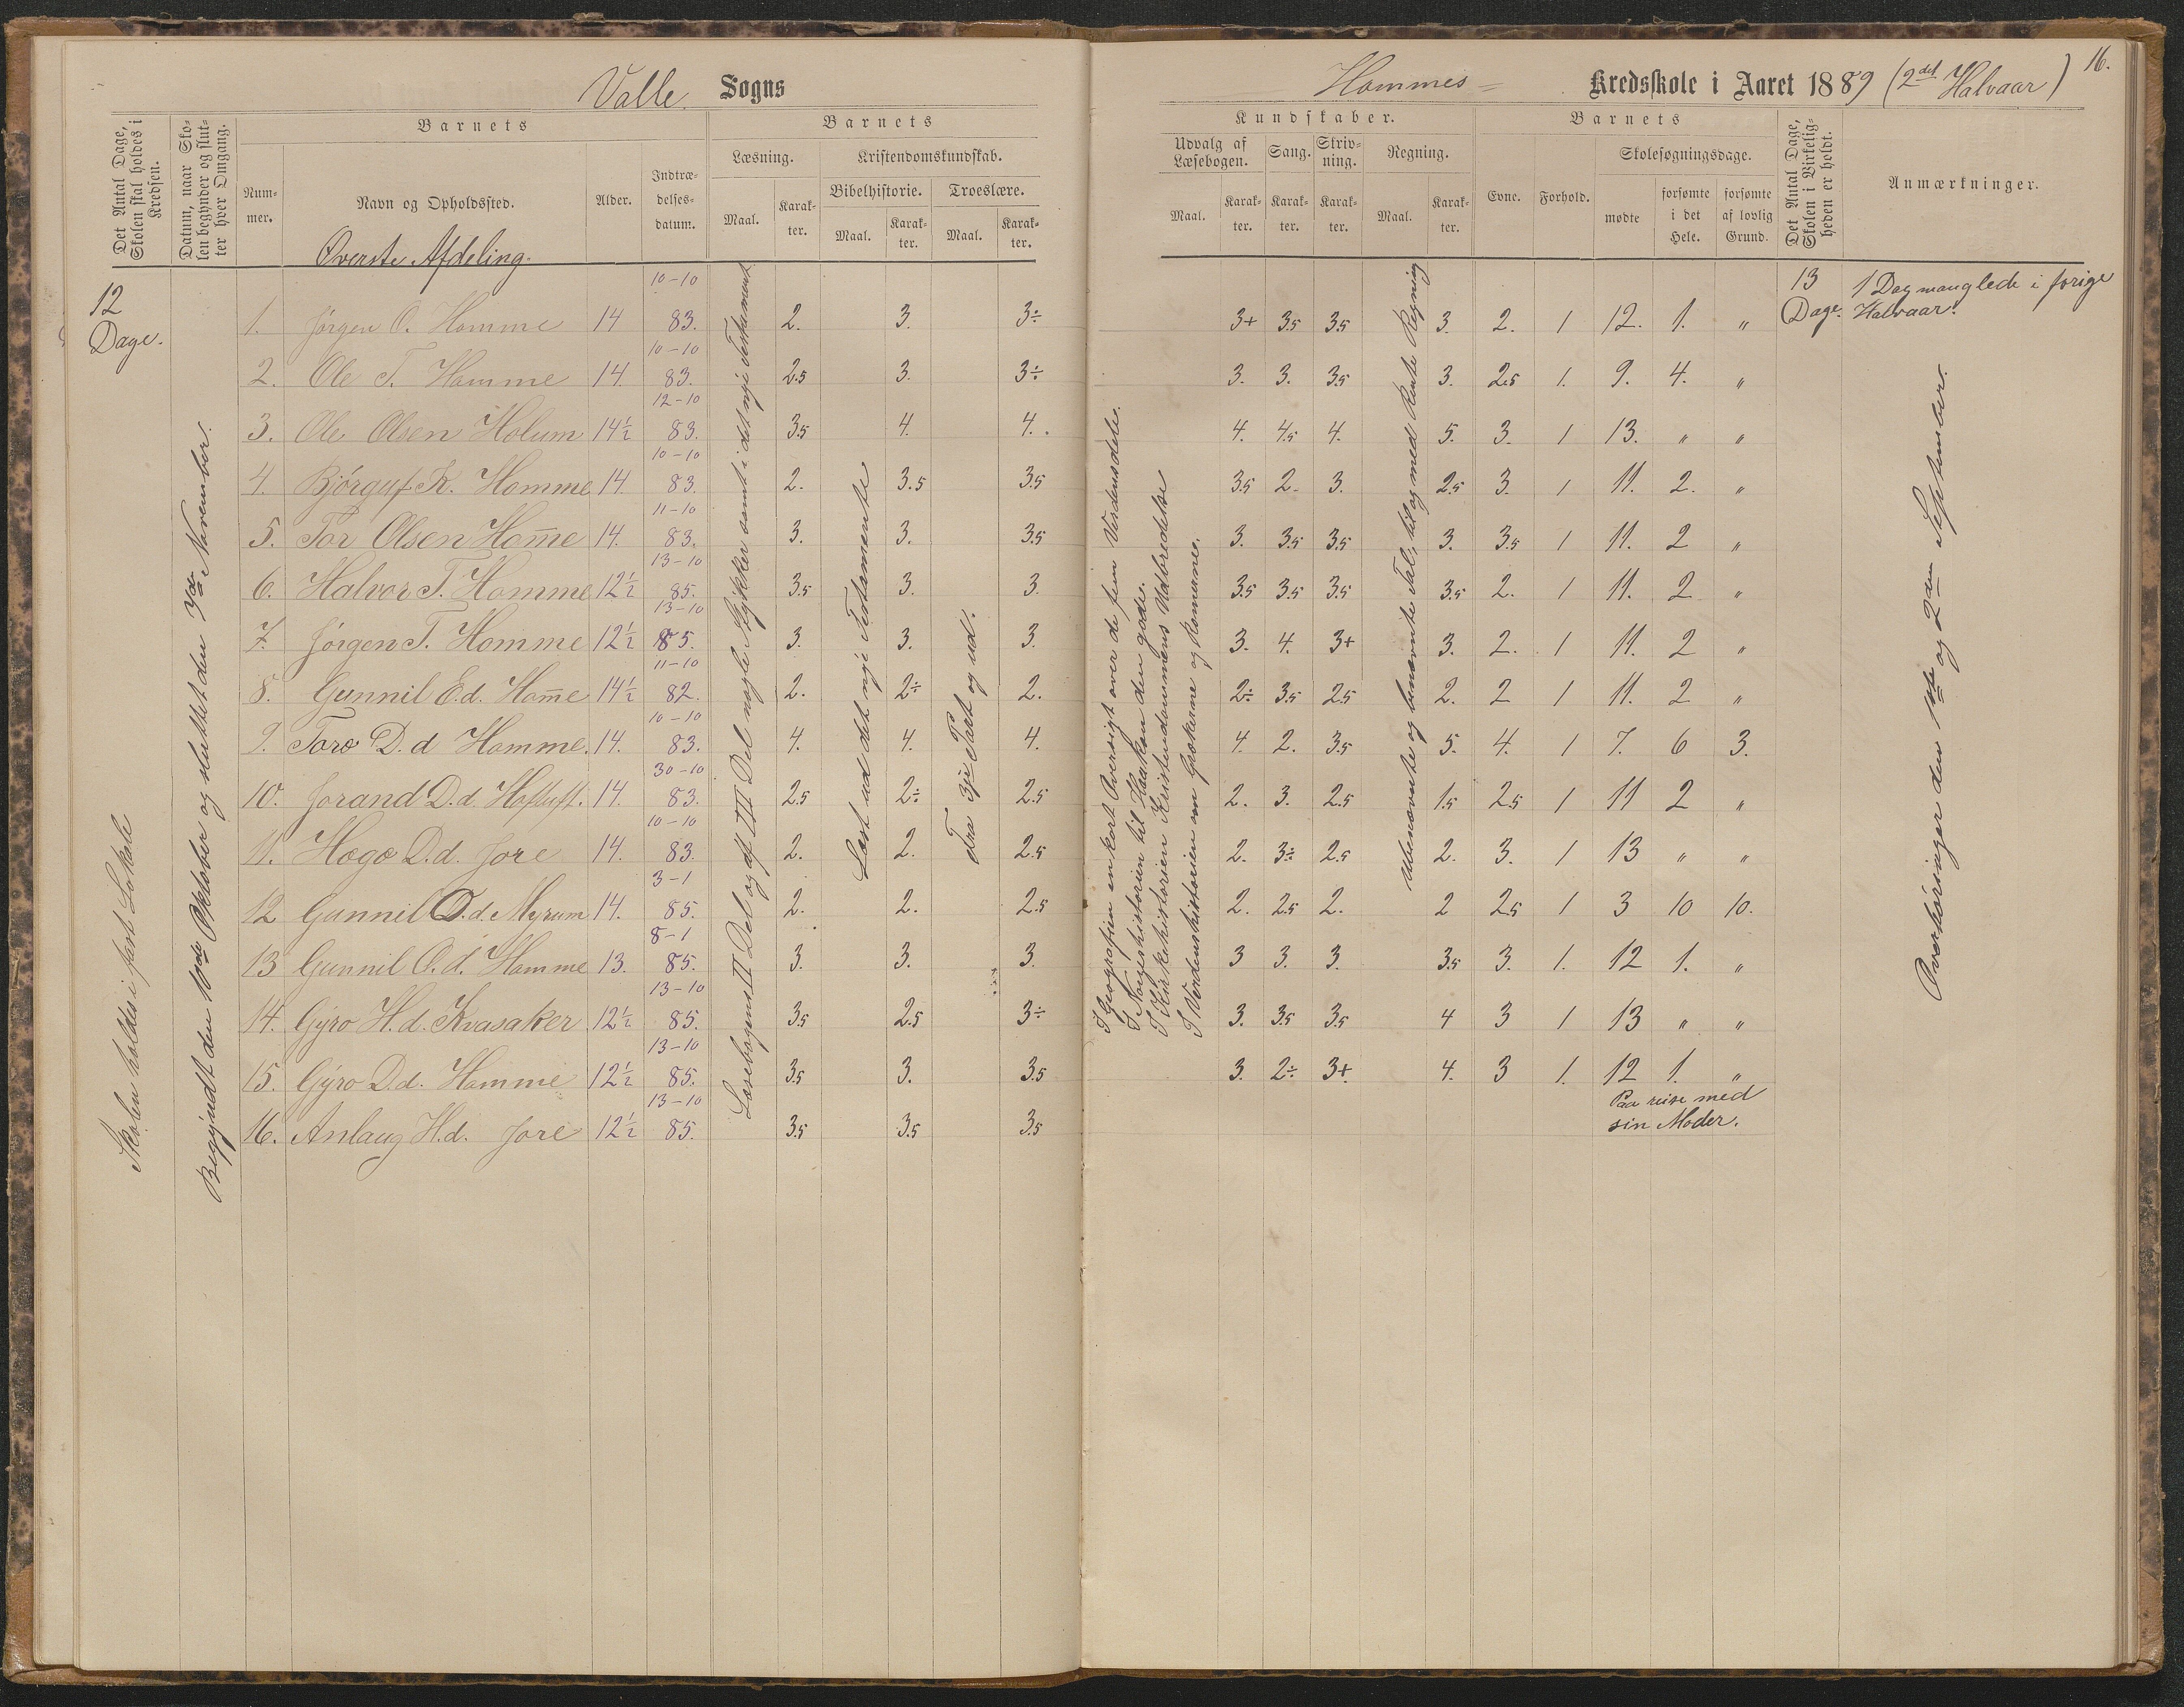 Valle Sogns
Det Antal Dage, Skolen skal holdes i Kredsen.
Datum, naar Skolen begynder og slutter hver Omgang.
Barnets
Nummer.
Navn og Opholdssted.
Alder.
Indtrædelses-datum.
Barnets
Læsning.
Maal.
Karakter.
Kristendomskundskab.
Bibelhistorie.
Maal.
Karakter.
Troeslære.
Maal.
Karakter.
Øverste Afdeling.
12 Dage.
Skolen holdes i fast Lokale
Begyndt den 16de Oktober og sluttet den November.
Læsebogens II Del og af III Del nogle Stykker samt i det nye Testament
Læst ud det nye Testamente
Fra 3je Part og ud.
1. Jørgen O. Homme 14 10-10 83. 2. 3. 3÷
2. Ole T. Homme 14. 10-10 83. 2.5 3. 3÷
3. Ole Olsen Holum 14½ 12-10 83. 3.5 4. 4.
4. Bjørguf K. Homme 14. 10-10 83. 2. 3.5 3.5
5. Tor Olsen Hom̅e 14. 11-10 83. 3. 3. 3.5
6. Halvor T. Homme 12½ 13-10 85. 3.5 3. 3.
7. Jørgen T. Homme 12½ 13-10 85. 3. 3. 3.
8. Gunnil E.d. Hom̅e 14½ 11-10 82. 2. 2÷ 2.
9. Toro D.d Homme. 14. 10-10 83. 4. 4. 4.
10. Jorand D.d. Hoftuft. 14. 30-10 83. 2.5 2÷ 2.5
11. Hogo D.d. Jore 14. 10-10 83. 2. 2. 2.5
12 Gunnil D.d. Myrum 14. 3-1 85. 2. 2. 2.5
13 Gunnil O.d. Homme 13. 8-1 85. 3. 3. 3.
14. Gyro H.d. Kvasaker 12½ 13-10 85. 3.5 2.5 3÷
15. Gyro D.d. Homme 12½ 13-10 85. 3.5 3. 3.5
16. Anlaug H.d. Jore 12½ 13-10 85. 3.5 3.5 3.5
16.
Hommes- Kredsskole i Aaret 1889 (2det Halvaar)
Kundskaber.
Udvalg af Læsebogen.
Maal.
Karakter.
Sang.
Karakter.
Skrivning.
Karakter.
Regning.
Maal.
Karakter.
Barnets
Evne.
Forhold.
Skolesøgningsdage.
mødte
forsømte i det Hele.
forsømte af lovlig Grund.
Det Antal Dage, Skolen i Virkeligheden er holdt.
Anmærkninger.
I Geografien en kort Oversigt over de fem Verdensdele.
I Norgeshistorien til Haakon den gode.
I Kirkehistorien Kristendommens Udbredelse
I Verdenshistorien om Grækerne og Romerne.
Ubenævnte og benævnte Tal, til og med Rente Regning
13 Dage.
1 Dag manglede i forige Halvaar.
Overhøringer den 1ste og 2den September.
3+ 3.5 3.5 3. 2. 1 12. 1. "
3. 3. 3.5 3. 2.5 1. 9. 4. "
4. 4.5 4. 5. 3. 1 13. " "
3.5 2. 3. 2.5 3. 1 11. 2. "
3. 3.5 3.5 3. 3.5 1 11. 2 "
3.5 3.5 3.5 3.5 2. 1 11. 2 "
3. 4. 3+ 3. 2. 1 11. 2 "
2÷ 3.5 2.5 2. 2 1 11. 2 "
4. 2. 3.5 5. 4. 1 7. 6 3.
2. 3. 2.5 1.5 2.5 1 11 2 "
2. 3÷ 2.5 2. 3. 1 13 " "
2. 2.5 2. 2 2.5 1 3 10 10.
3 3. 3. 3.5 3. 1. 12 1. "
3. 3.5 3.5 4 3 1 13 " "
3. 2÷ 3+. 4. 3 1. 12 1. "
Paa reise med
sin Moder.